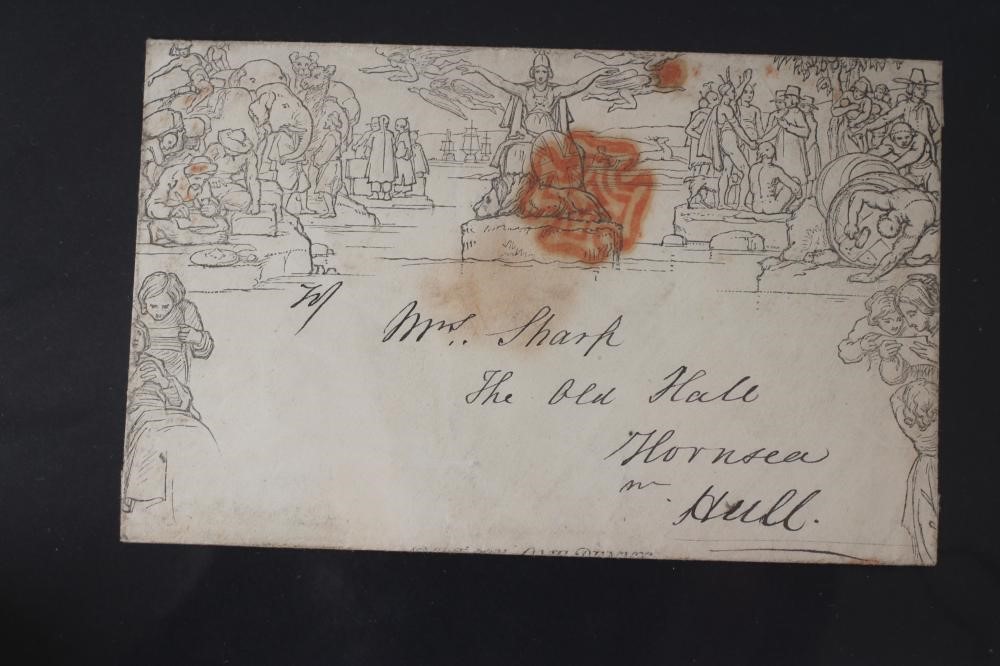 Mrs. Sharp
The Old Hall
Hornsea
nr. Hull.